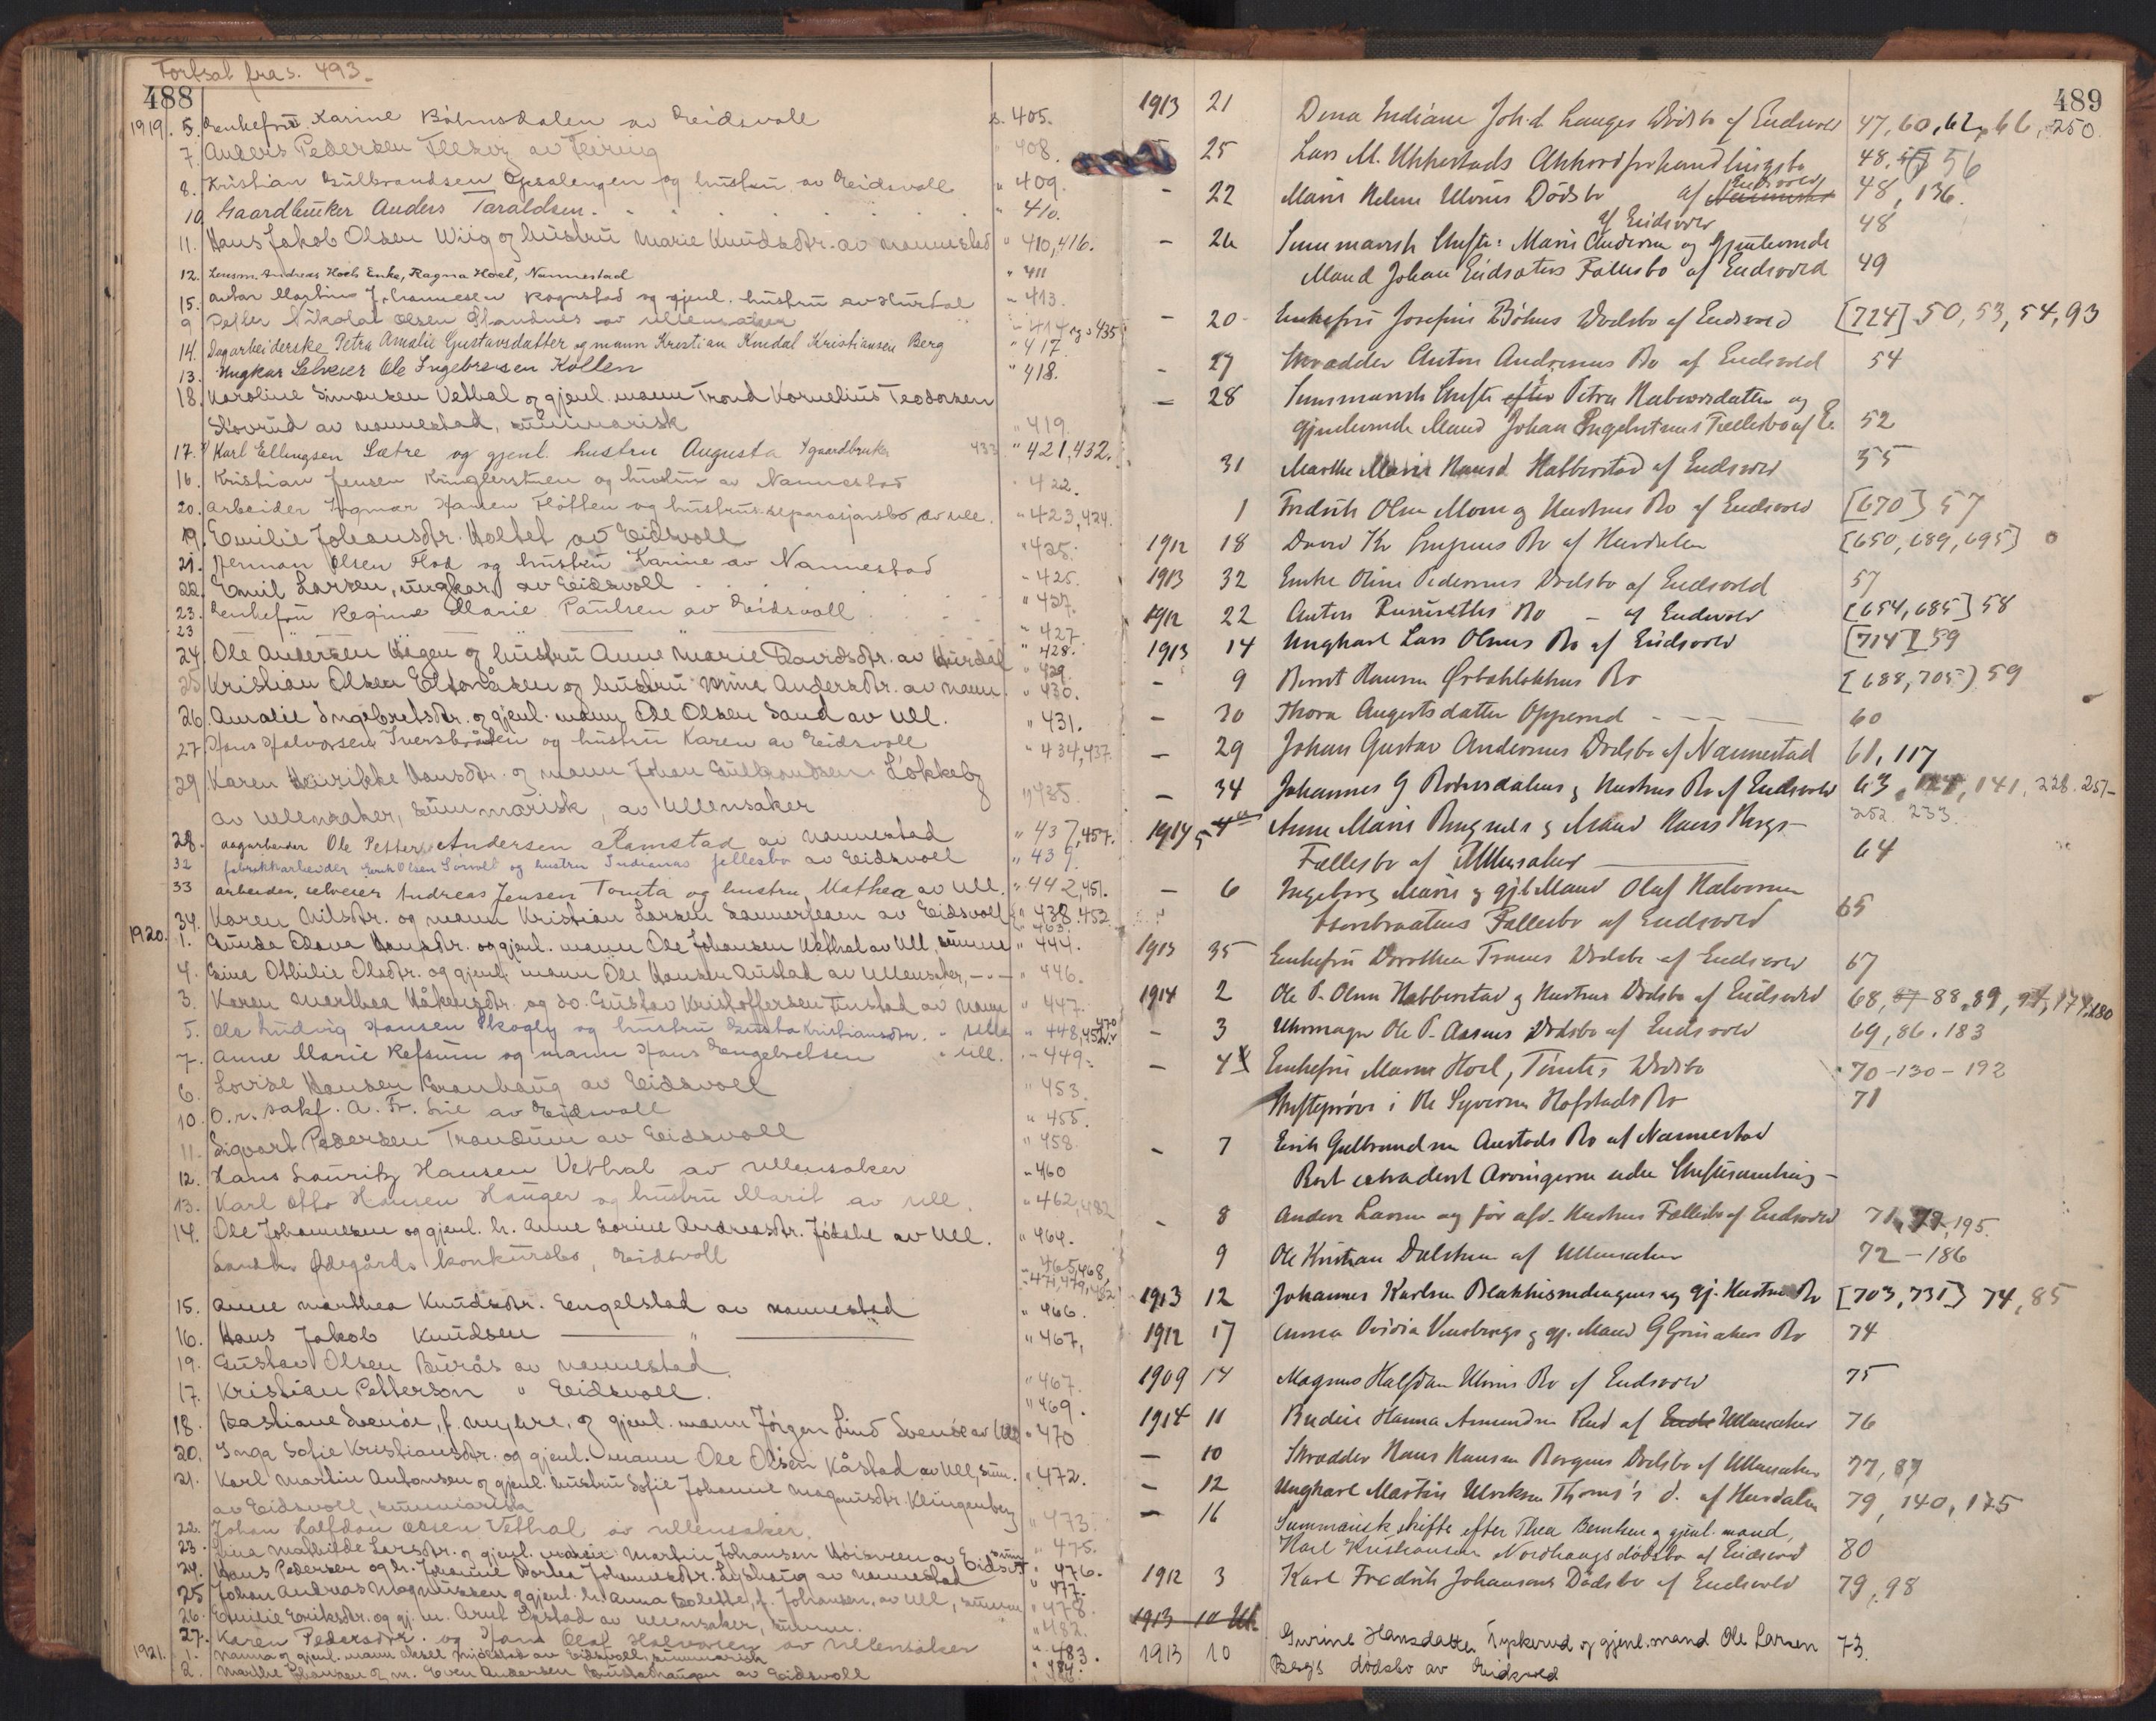 Fortsat fra s. 493.
488
1919. 5. Enkefru Karine Böhnsdalen av Eidsvoll s. 405.
7. Anders Pedersen Flesvig av Feiring " 408.
8. Kristian Gulbrandsen Opsalengen og hustru av Eidsvoll " 409.
10. Gaardbruker Anders Taraldsen. " 410.
11. Hans Jakob Olsen Wiig og hustru Marie Knudsdtr. av Nannestad " 410, 416.
12. Lensm. Andreas Hoels Enke, Ragna Hoel, Nannestad " 411
15. Anton Martin Johannesen Rognstad og gjenl. hustru av Hurdal " 413.
9 Petter Nikolai Olsen Strandnes av Ullensaker " 414 og 435
14. Dagarbeiderske Petra Amalie Gustavsdatter og mann Kristian Knudal Kristiansen Berg " 417.
13. Ungkar Selveier Ole Ingebretsen Kollen " 418.
18. Karoline Simensen Vethal og gjenl. mann Trond Kornelius Teodorsen
Skovrud av Nannestad, summarisk " 419.
17. Karl Ellingsen Sætre og gjenl. hustru Augusta, gaardbruker 433 " 421, 432.
16. Kristian Jensen Kringlerstuen og hustru av Nannestad " 422.
20. Arbeider Ingmar Hansen Fløtten og hustrus separasjonsbo av Ull. " 423, 424.
19. Emilie Johansdtr. Holtet av Eidsvoll " 425.
21. Herman Olsen Flod og hustru Karine av Nannestad " 425.
22. Emil Larsen, ungkar, av Eidsvoll " 427.
23. Enkefru Regine Marie Paulsen av Eidsvoll
23 " 427.
24. Ole Andersen Hagen og hustru Anne Marie Davidsdtr. av Hurdal " 428. " 429.
25 Kristian Olsen Eltonåsen og hustru Mina Andersdtr. av Nann. " 430.
26. Amalie Ingebretsdtr. og gjenl. mann Ole Olsen Sand av Ull. " 431.
27. Hans Halvorsen Iversbråten og hustru Karen av Eidsvoll " 434, 437.
29. Karen Henrikke Hansdtr. og mann Johan Gulbrandsen Løkkeby
av Ullensaker, summarisk, av Ullensaker " 435.
28. Dagarbeider Ole Petter Andersen Ramstad av Nannestad " 437, 457.
32 fabrikkarbeider Erik Olsen Sørvold og hustru Indianas fellesbo av Eidsvoll " 439.
33 arbeider, selveier Andreas Jensen Tomta og hustru Mathea av Ull. " 442, 451.
34. Karen Nilsdtr. og mann Kristian Larsen Sannerjean av Eidsvoll " 438, 452 " 463.
1920. 1. Gunda Olava Hansdtr. og gjenl. mann Ole Johansen Vethal av Ull. summ " 444.
4. Gine Othilie Olsdtr. og gjenl. mann Ole Hansen Austad av Ullensaker, — " — " 446.
3. Karen Marthea Håkensdtr. og do. Gustav Kristoffersen Finstad av Nann " 447.
5. Ole Ludvig Hansen Skogly og hustru Gusta Kristiansdtr. " Ulls " 448, 452, 470
7. Anne Marie Refsum og mann Hans Engebretsen " Ull. " 449.
6. Lovise Hansen Granhaug av Eidsvoll " 453.
10 O.r. sakf. A. Fr. Lie av Eidsvoll " 455.
11. Sigvart Pedersen Trandum av Eidsvoll " 458
12. Hans Lauritz Hansen Vethal av Ullensaker " 460
13. Karl Otto Hansen Hauger og hustru Marit av Ull. " 462, 482
14. Ole Johannesen og gjenl. h. Anne Sorine Andreasdtr. Jødahl av Ull. " 464.
Sandh. Ødegårds konkursbo, Eidsvoll " 465, 468
" 471, 479, 482.
15. Anne Marthea Knudsdtr. Engelstad av Nannestad " 466.
16. Hans Jakob Knudsen — " — " 467,
19. Gustav Olsen Burås av Nannestad
17. Kristian Petterson " Eidsvoll. " 467.
" 469.
18. Bastiane Svenøe, f. Myhre, og gjenl. mann Jörgen Lind Svenøe av Ull " 470
20. Inga Sofie Kristiansdtr. og gjenl. mann Ole Olsen Kåstad av Ull, sum. " 472.
21. Karl Martin Antonsen og gjenl. hustru Sofie Johanne Magnusdtr. Klingenberg
av Eidsvoll, summarisk " 473.
22. Johan Halfdan Olsen Vethal av Ullensaker. " 475.
23. Lina Mathilde Larsdtr. og gjenl. mann Martin Johansen Hoisveen av Eidsv. summ " 476.
24. Hans Pedersen og h. Johanne Dorthea Johannesdtr. Lyshaug av Nannestad " 477.
25 Johan Andreas Magnussen og gjenl. h. Anna Bolette, f. Johansen, av Ull, summ " 478.
26. Emilie Eriksdtr. og gj. m. Arnt Opstad av Ullensaker, summ. " 482.
27. Karen Pedersdtr. og Hans Olaf Halvorsen av Ullensaker " 483.
1921. 1. Nanna og gjenl. mann Aksel Mjølstad av Eidsvoll, summarisk " 484.
2. Marthe Johansen og m. Even Andersen Brustadhaugen av Eidsvoll
489
1913 21 Dina Indiane Joh.d. Hauges Dödsbo af Eidsvold 47, 60, 62, 66, 250.
25 Lars M. Ukkestads Akkordforhandlingsbo 48, 56
- 22 Maris Helene Ulvins Dödsbo af Nannestad Eidsvold 48, 136.
af Eidsvold 48
- 24 Summarisk Skifte: Maris Andersen og Gjenlevende
Mand Johan Eidsaters Fællesbo af Eidsvold 49
- 20 Enkefru Josefine Böhns Dödsbo af Eidsvold [724] 50, 53, 54, 93
- 27 Skrædder Anton Andersens Bo af Eidsvold 54
- 28 Summarisk Skifte efter Petra Halvorsdatter og
gjenlevende Mand Johan Engebretsens Fællesbo af E. 52
31 Marthe Marie Hansd. Habberstad af Eidsvold 55
1 Fredrik Olsen Moen og Hustrus Bo af Eidsvold [670] 57
1912 18 David Kr. Bo af Hurdalen [650, 689, 695]
1913 32 Enke Oline Pedersens Dödsbo af Eidsvold 57
1912 22 Anton Bo - af Eidsvold [654, 685] 58
1913 14 Ungkarl Lars Olsens Bo af Eidsvold [714] 59
- 9 Bernt Hansen Ørbækløkkens Bo [688, 705] 59
- 30 Thora Augertsdatter Opperud 60
- 29 Johan Gustav Andersens Dödsbo af Nannestad 61, 117
- 34 Johannes G Bohnsdalens og Hustrus Bo af Eidsvold 63, 141, 228. 251-
252. 233.
1914 5 Anne Marie og Mand Hans Bergs
Fællesbo af Ullensaker 64
- 6 Ingeborg Maris og gjl. Mand Olaf Halvorsen
Fællesbo af Eidsvold 65
1913 35 Enkefru Dorothea Trones Dödsbo af Eidsvold 67
1914 2 Ole P. Olsen Habberstad og Hustrus Dödsbo af Eidsvold 68, 87 88, 89, 97, 174, 180
- 3 Uhrmager Ole P. Aasnes Dödsbo af Eidsvold 69, 86. 183
- 4 Enkefru Maren Hoel, Tömte, Dödsbo 70-130-192
Skifteprøve i Ole Syversen Hofstads Bo 71
- 7 Erik Gulbrandsen Austads Bo af Nannestad
Boet extraderet Arvingerne uden Skiftesamling -
- 8 Anders Larsen og før afd. Hustrus Fællesbo af Eidsvold 71, 77, 195.
9 Ole Kristian Dalstuen af Ullensaker 72 - 186
1913 12 Johannes Karlsen Blakkisrudengens og gj. Hustrus Bo [703, 731] 74, 85
1912 17 Anna Ovidia Vensbergs og gj. Mand G Grinakers Bo 74
1909 14 Magnus Halfdan Ulvins Bo af Eidsvold 75
1914 11 Budine Hanna Amundsen Rud af Eids Ullensaker 76
- 10 Skrædder Hans Hansen Borgens Dödsbo af Ullensaker 77, 87
- 12 Ungkarl Martin Ulriksen Thoms's d. af Hurdalen 79, 140, 175
- 16 Summarisk skifte efter Thea Berntsen og gjenl. mand,
Karl Kristiansen Nordhaugs dödsbo af Eidsvold 80
1912 3 Karl Fredrik Johansens Dödsbo af Eidsvold 79, 98
1913 10 Uh
1913 10 Gurine Hansdatter Tyskerud og gjenl. mand Ole Larsen 73.
Bergs dödsbo av Eidsvold